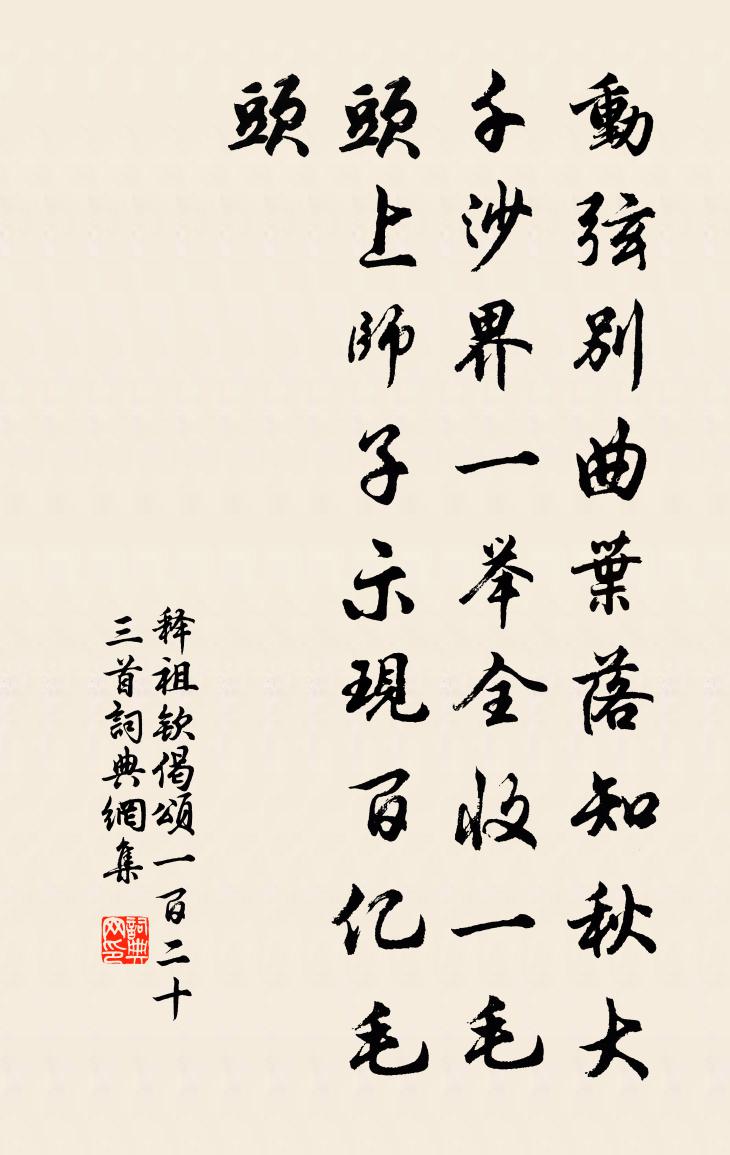 動弦別曲葉落知秋大
千沙界一举全收一毛
頭上師子示現百亿毛
頭
释祖欽偈頌一百二十
三首詞典網集
詞典
网印